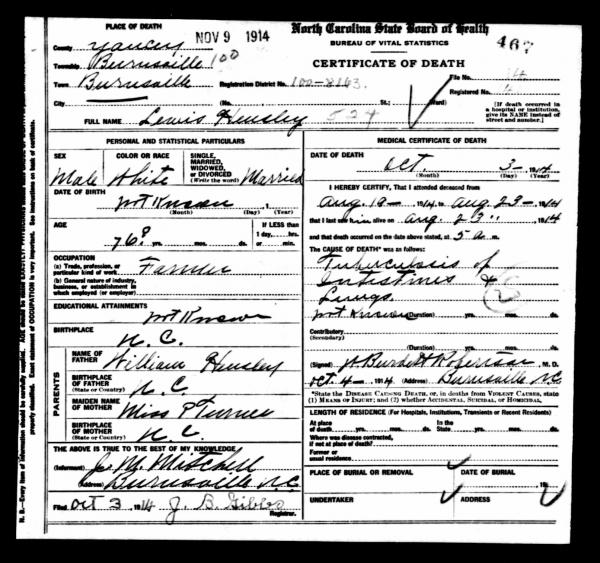 NOV 9 1914
North Carolina State Board of Health
BUREAU OF VITAL STATISTICS
467
CERTIFICATE OF DEATH
PLACE OF DEATH
County Yancey
Township Burnsville 100
Town Burnsville
Registration District No. 100-8163
File No. 14
Registered No.
City
(No. St.; Ward)
[If death occurred in
a hospital or institution,
give its NAME instead of
street and number.]
FULL NAME Lewis Hensley 524
PERSONAL AND STATISTICAL PARTICULARS
SEX
Male
COLOR OR RACE
White
SINGLE,
MARRIED,
WIDOWED,
or DIVORCED
(Write the word) Married
DATE OF BIRTH
not Known, 1
(Month) (Day) (Year)
AGE
76? yrs. mos. ds.
If LESS than
1 day, hrs.
or min.
OCCUPATION
(a) Trade, profession, or
particular kind of work Farmer
(b) General nature of industry,
business, or establishment in
which employed (or employer)
EDUCATIONAL ATTAINMENTS
not Known
BIRTHPLACE
N.C.
PARENTS
NAME OF
FATHER William Hensley
BIRTHPLACE OF
FATHER
(State or Country) N.C.
MAIDEN NAME
OF MOTHER Miss P Turner
BIRTHPLACE
OF MOTHER
(State or Country) N.C.
THE ABOVE IS TRUE TO THE BEST OF MY KNOWLEDGE
(Informant) J. M. Mitchell
(Address) Burnsville N.C.
Filed Oct 3 1914 J. B. Gibbs
Registrar.
MEDICAL CERTIFICATE OF DEATH
DATE OF DEATH
Oct. 3- 1914
(Month) (Day) (Year)
I HEREBY CERTIFY, That I attended deceased from
Aug. 10- 1914 to Aug 23- 1914
that I last saw him alive on Aug. 23" 1914
and that death occurred on the date above stated, at 5 a m.
The CAUSE OF DEATH* was as follows:
Tuberculosis of
Intestines &
Lungs.
not Known (Duration) yrs. mos. ds.
Contributory
(Secondary)
(Duration) yrs. mos. ds.
(Signed) W. Burdett Robertson, M. D.
Oct 4- 1914 (Address) Burnsville N.C.
*State the DISEASE CAUSING DEATH, or, in deaths from VIOLENT CAUSES, state
(1) MEANS OF INJURY; and (2) whether ACCIDENTAL, SUICIDAL, or HOMICIDAL.
LENGTH OF RESIDENCE (For Hospitals, Institutions, Transients or Recent Residents)
At place
of death yrs. mos. ds.
In the
State yrs. mos. ds.
Where was disease contracted,
if not at place of death?
Former or
usual residence
PLACE OF BURIAL OR REMOVAL
DATE OF BURIAL
, 19
UNDERTAKER
ADDRESS